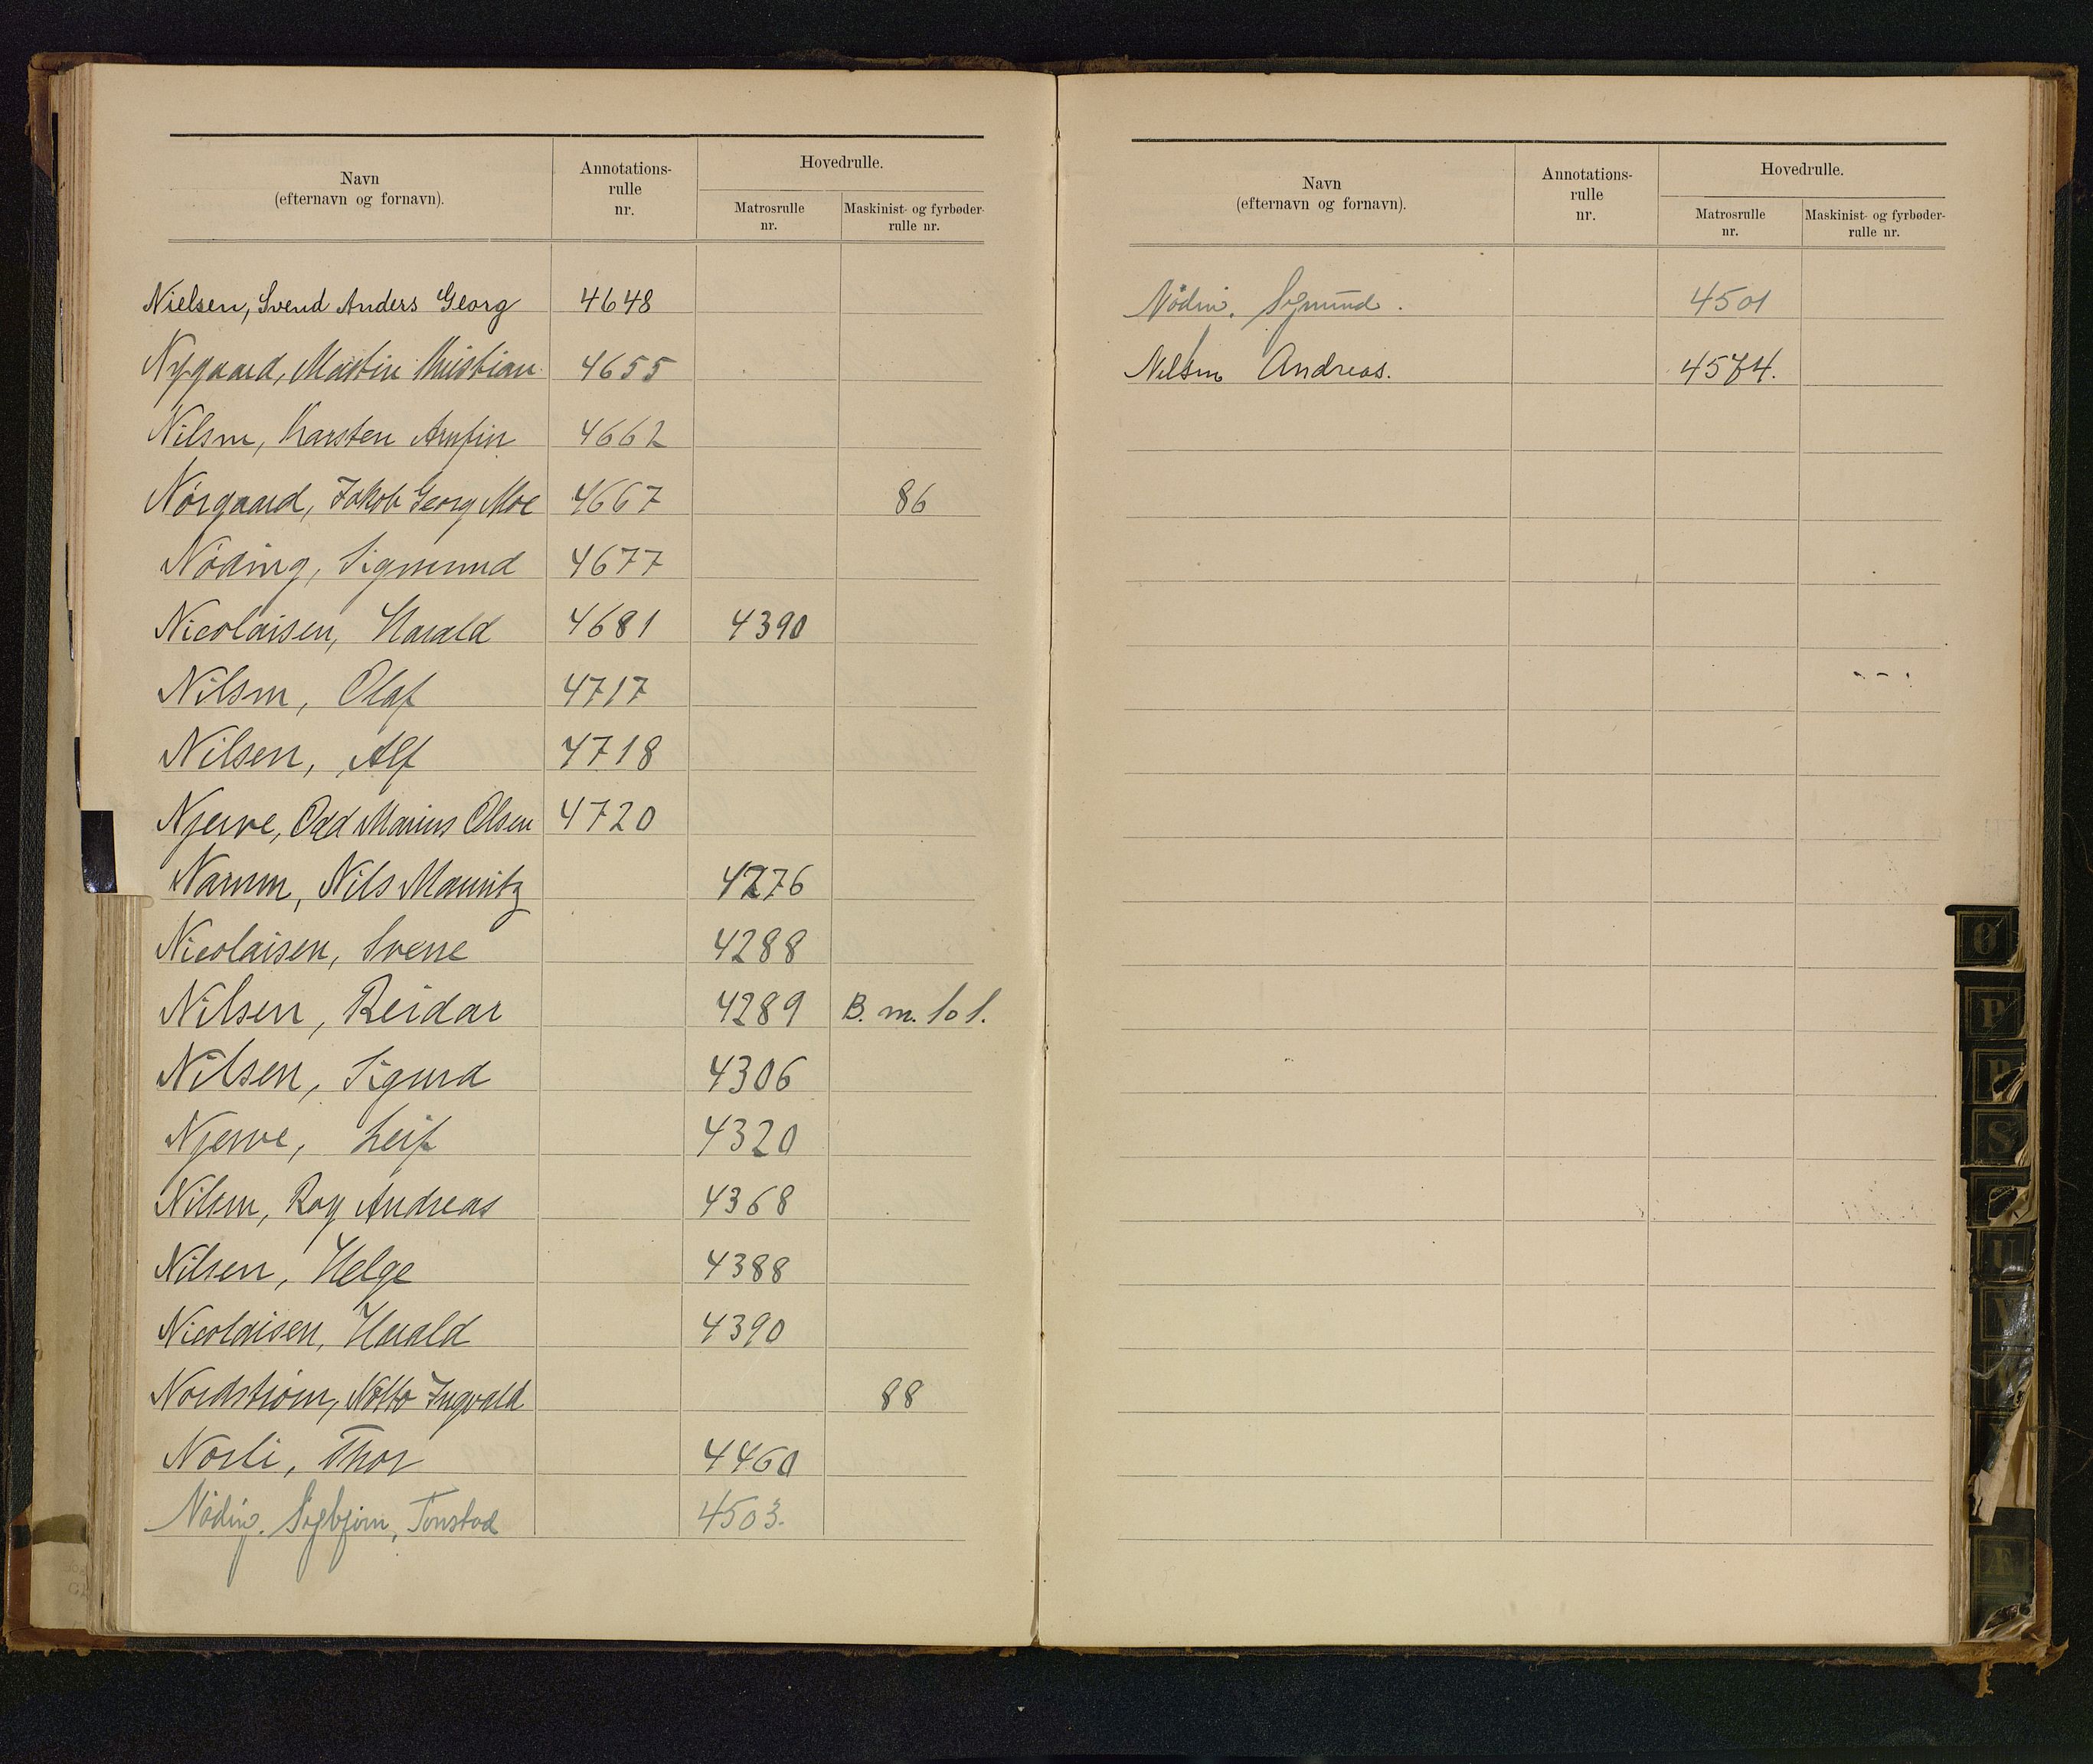 Navn
(efternavn og fornavn).
Annotations-
rulle
nr.
Hovedrulle.
Matrosrulle
nr.
Maskinist- og fyrbøder-
rulle nr.
Nielsen, Svend Anders Georg 4648
Nygaard, Martin Kristian 4655
Nilsen, Karsten Arnfin 4662
Nørgaard, Jakob Georg Moe 4667 86
Nöding, Sigmund 4677
Nicolaisen, Harald 4681 4390
Nilsen, Olaf 4717
Nilsen, Alf 4718
Njerve, Odd Marius Olsen 4720
Namm, Nils Mauritz 4276
Nicolaisen, Sverre 4288
Nilsen, Reidar 4289 B. m. 101.
Nilsen, Sigurd 4306
Njerve, Leif 4320
Nilsen, Roy Andreas 4368
Nilsen, Helge 4388
Nicolaisen, Harald 4390
Nordstrøm, Notto Ingvald 88
Norli, Thor 4460
Nöding, Sigbjörn, Tonstad 4503.
Navn
(efternavn og fornavn).
Annotations-
rulle
nr.
Hovedrulle.
Matrosrulle
nr.
Maskinist- og fyrbøder-
rulle nr.
Nöding, Sigmund. 4501
Nilsen Andreas. 4574.
O
P
R
S
U
V
Æ